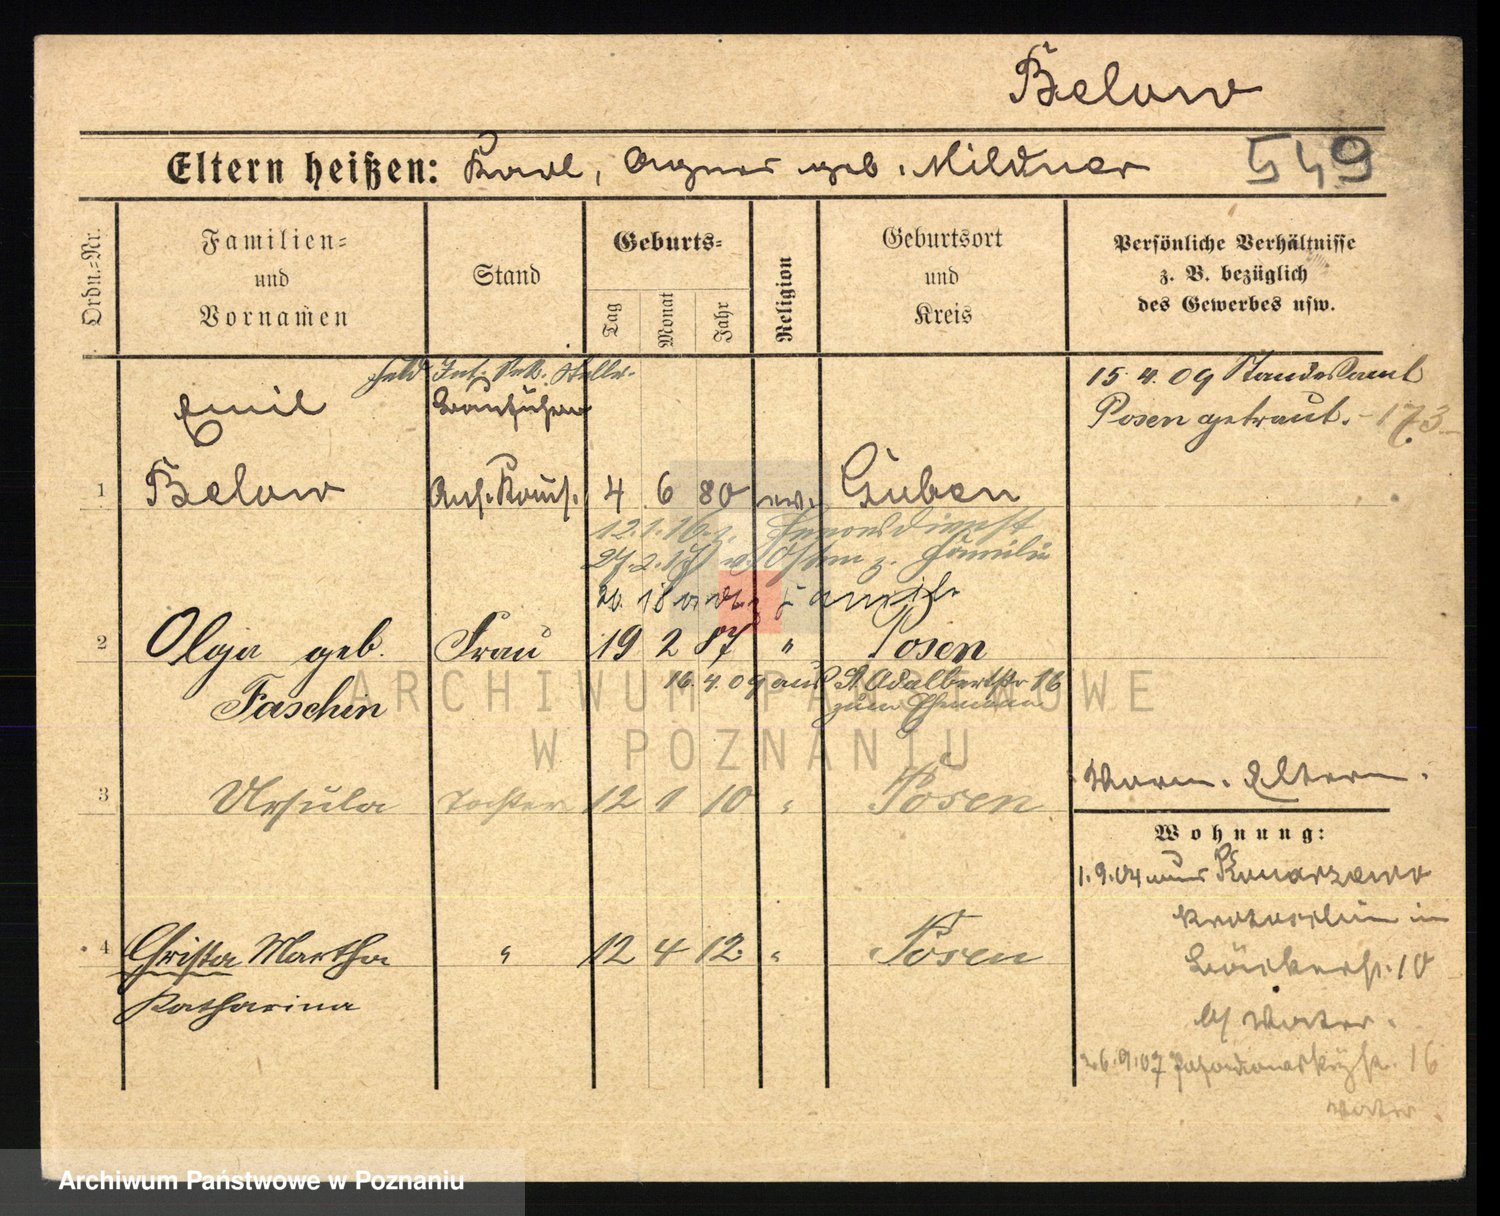 Below
Eltern heißen: Karl, Agnes geb. Mildner
549
Ordn.=Nr.
Familien=
und
Vornamen
Stand
Geburts=
Tag
Monat
Jahr
Religion
Geburtsort
und
Kreis
Persönliche Verhältnisse
z. B. bezüglich
des Gewerbes usw.
15. 4. 09 Standesamt
Posen getraut. - 173
Emil
1 Below 4 6 80 ev. Guben
12.1.16. z. Heeresdienst
27.2.17 v. Osten z. Familie
2 Olga geb. Frau 19 2 87 " Posen
Faschin
16. 4. 09 aus St. Adalbertstr 16
zum Ehemann
3 Ursula Tochter 12 1 10 " Posen
Eltern.
Wohnung:
1.9.04 aus Konarzewo
Krotoschin in
Bäckerstr. 10
b/ Vater.
4 Christa Martha " 12 4 12. " Posen
Katharina
26.9.07 16
Vater
ARCHIWUM PAŃSTWOWE
W POZNANIU
Archiwum Państwowe w Poznaniu